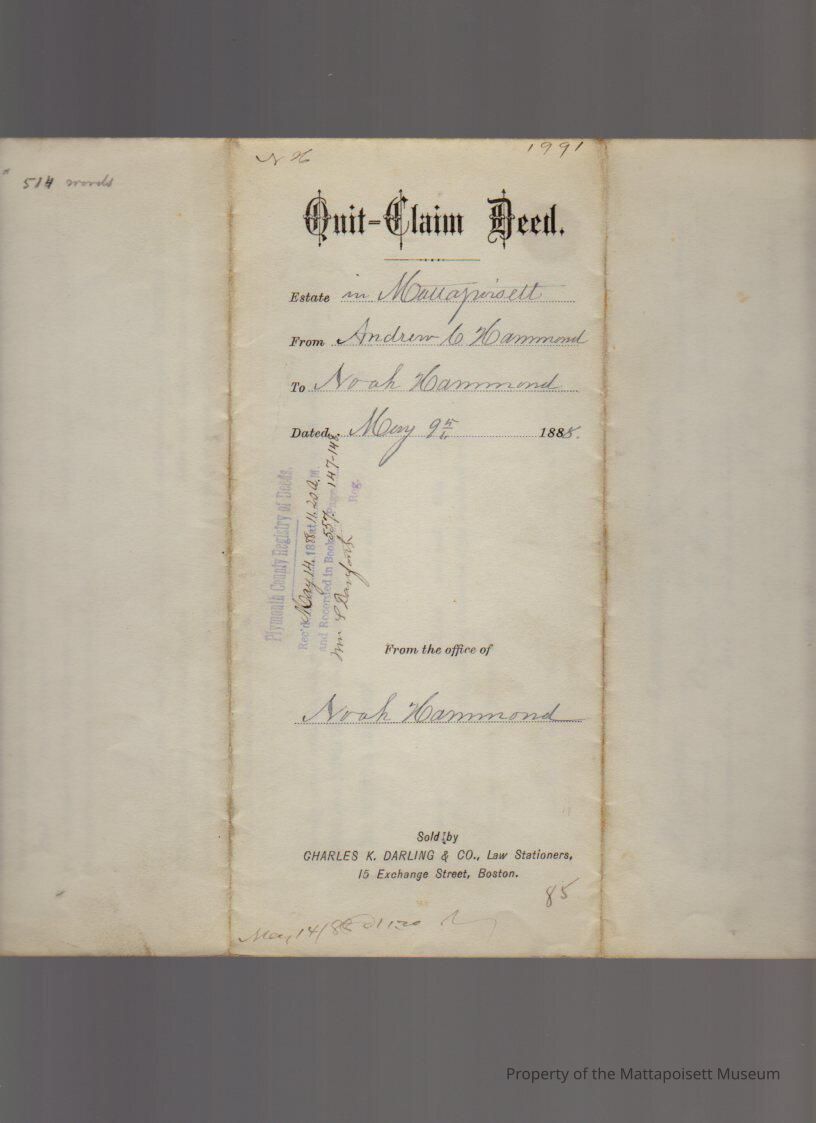 N H
1991
514 words
Quit-Claim Deed.
Estate in Mattapoisett
From Andrew C Hammond
To Noah Hammond
Dated, May 9th 1888.
Plymouth County Registry of Deeds.
Rec'd May 14, 1888 at 11.20 A. M.
and Recorded in Book 557. Page 147-148
Wm S Danforth Reg.
From the office of
Noah Hammond
Sold by
CHARLES K. DARLING & CO., Law Stationers,
15 Exchange Street, Boston.
85
May 14/88 11 20
Property of the Mattapoisett Museum